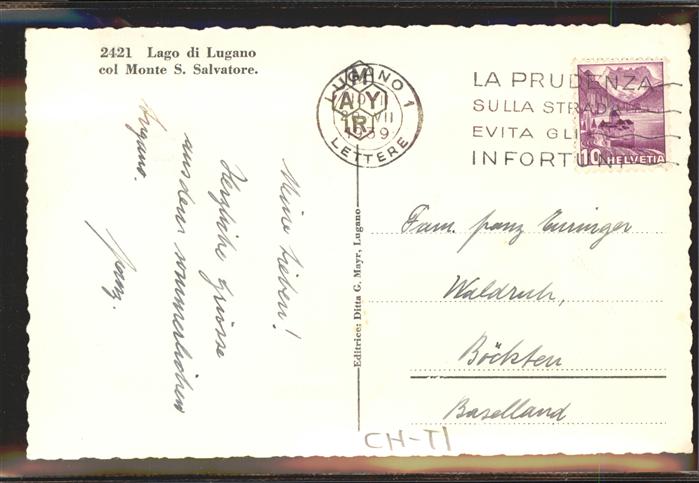 2421 Lago di Lugano
col Monte S. Salvatore.
LUGANO 1
VII
39
LETTERE
M
A Y
R
LA PRUDENZA
SULLA STRADA
EVITA GLI
INFORTUNI
10 HELVETIA
Editrice: Ditta G. Mayr, Lugano
Meine Lieben!
Herzliche Grüsse
aus dem sommerlichen
Lugano.
Franz.
Fam. Franz
Waldruh,
Böckten
Baselland
CH-TI